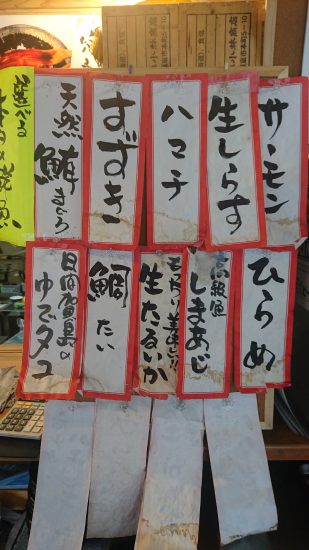 小林商店
サーモン
生しらす
ハマチ
すずき
天然鮪まぐろ
選べる
ひらめ
高級魚
しまあじ
生たるいか
鯛たい
日間賀島の
ゆでタコ